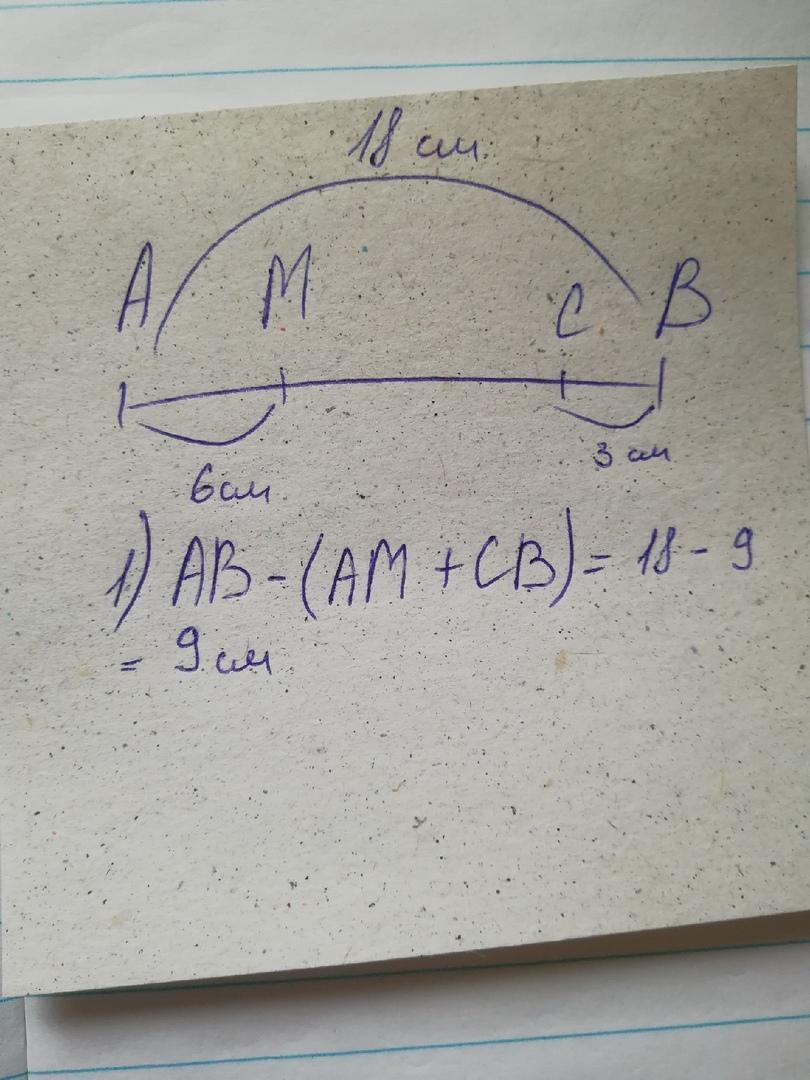 18 см
A M C B
6см 3 см
1) AB - (AM + CB) = 18 - 9
= 9 см